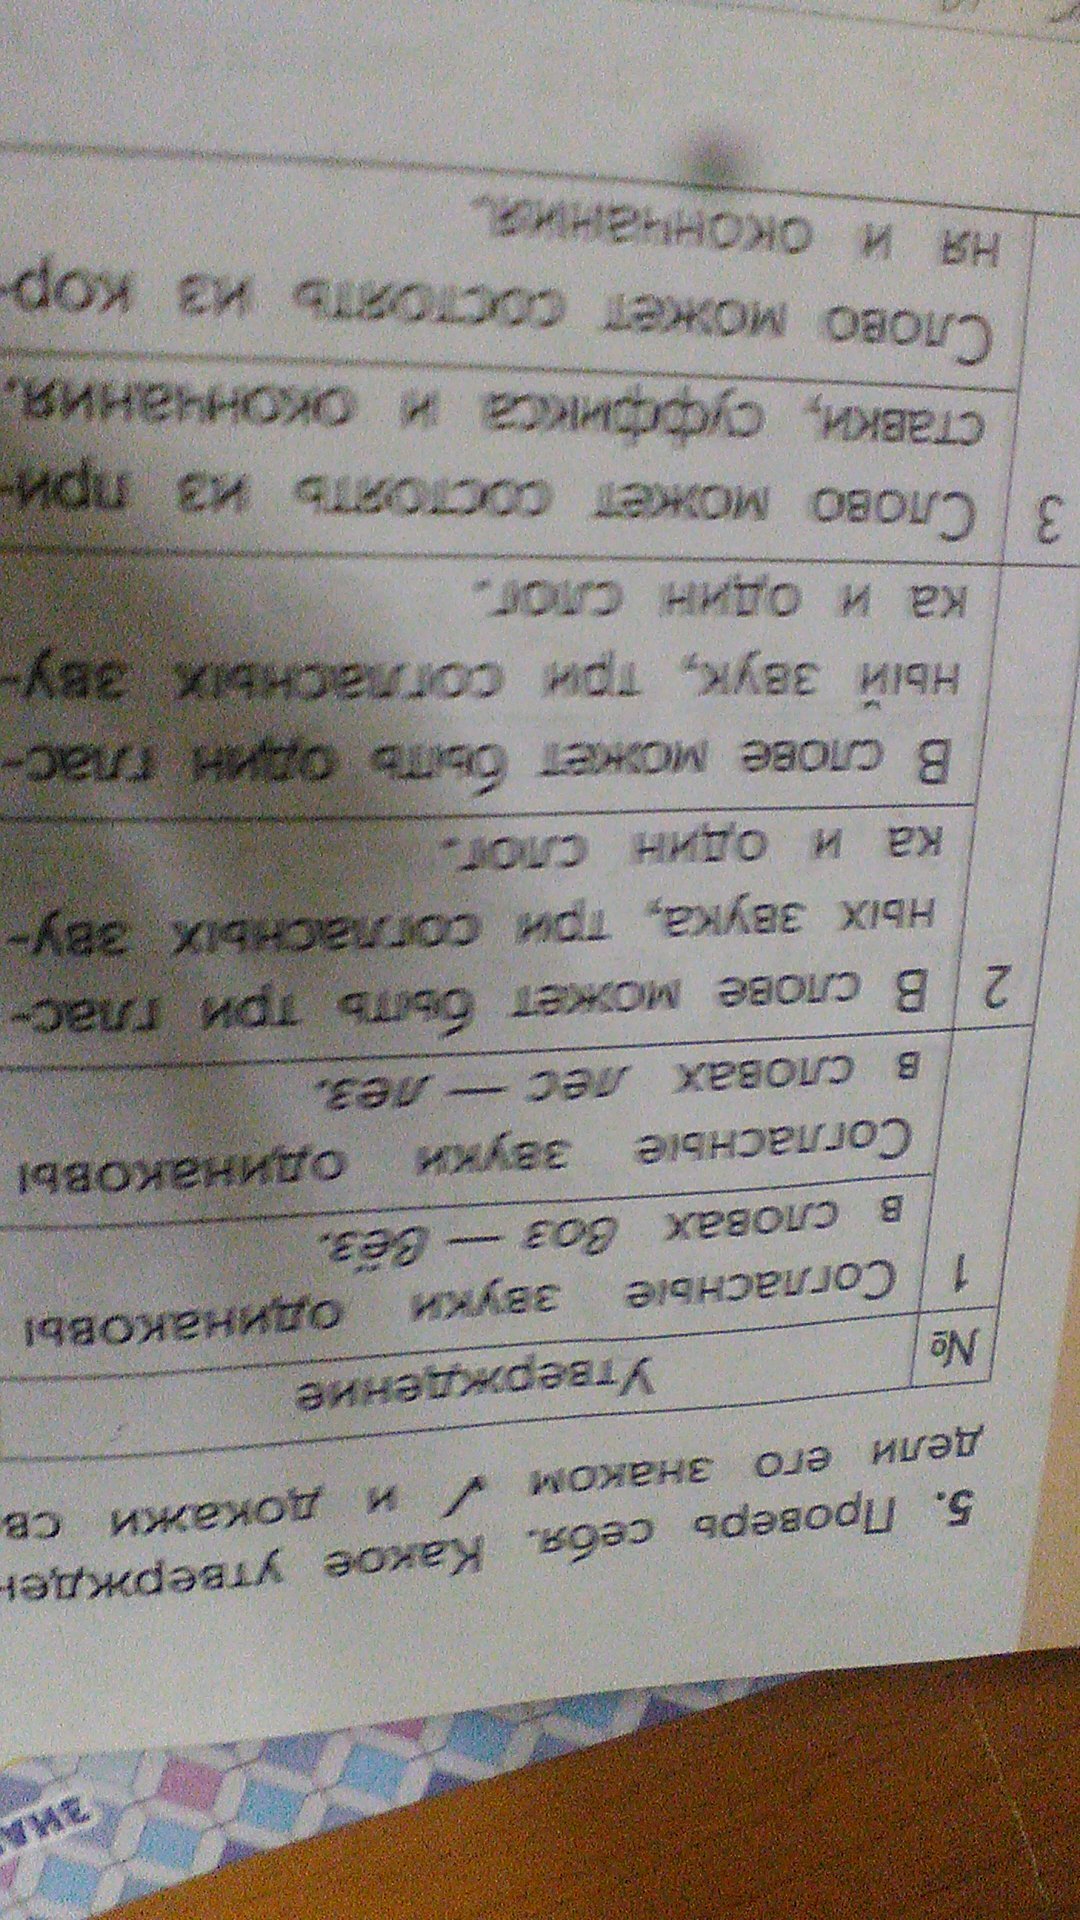 5. Проверь себя. Какое утвержден
дели его знаком ✓ и докажи св
№ Утверждение
1 Согласные звуки одинаковы
в словах воз — вёз.
Согласные звуки одинаковы
в словах лес — лез.
2 В слове может быть три глас-
ных звука, три согласных зву-
ка и один слог.
В слове может быть один глас-
ный звук, три согласных зву-
ка и один слог.
3 Слово может состоять из при-
ставки, суффикса и окончания.
Слово может состоять из кор-
ня и окончания.